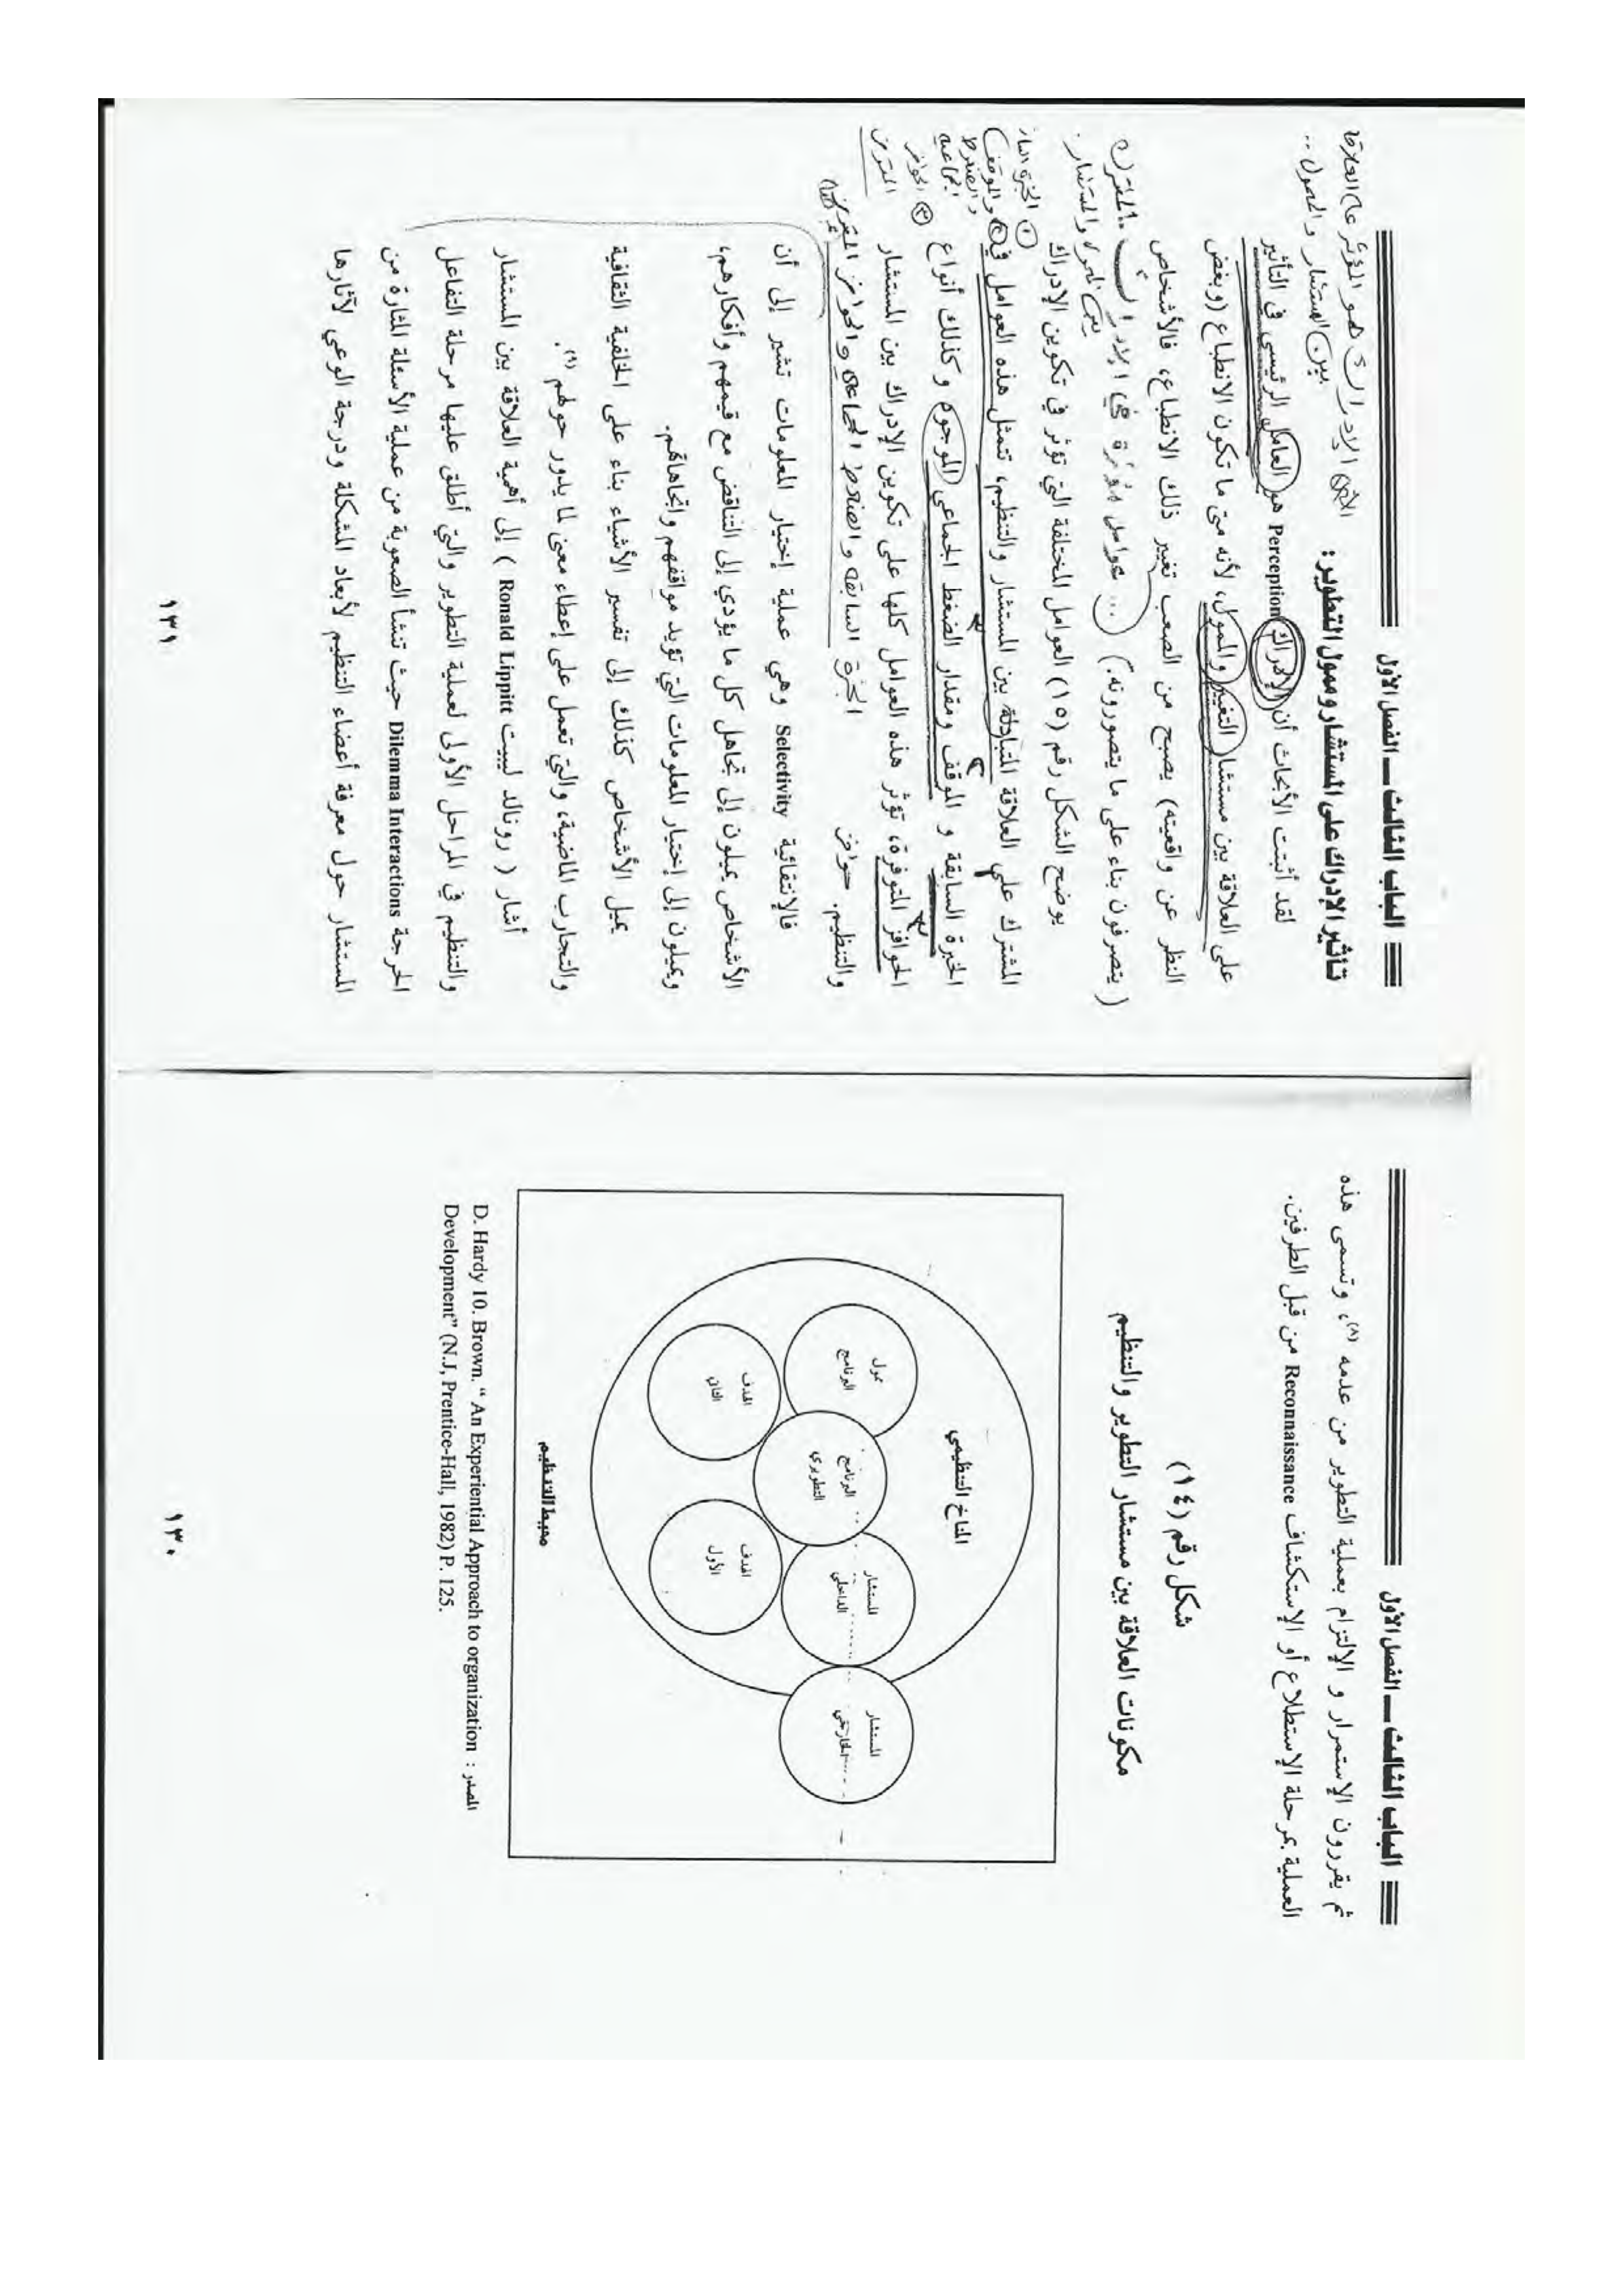 الباب الثالث ـــ الفصل الأول
ثم يقررون الإستمرار و الإلتزام بعملية التطوير من عدمه (٨)، وتسمى هذه
العملية بمرحلة الإستطلاع أو الإستكشاف Reconnaissance من قبل الطرفين.
شكل رقم (١٤)
مكونات العلاقة بين مستشار التطوير والتنظيم
المناخ التنظيمي
ممول
البرنامج
البرنامج
التطويري
المستشار
الداخلي
المستشار
الخارجي
الهدف
الثاني
الهدف
الأول
محيط التنظيم
المصدر : D. Hardy 10. Brown. “ An Experiential Approach to organization
Development” (N.J, Prentice-Hall, 1982) P. 125.
١٣٠
الباب الثالث ـــ الفصل الأول
الإدراك هو المؤثر على العلاقة
بين المستشار والممول ..
تأثير الإدراك على المستشار وممول التطوير:
لقد أثبتت الأبحاث أن الإدراك Perception هو العامل الرئيسى فى التأثير
على العلاقة بين مستشار التغيير والممول، لأنه متى ما تكون الانطباع (وبغض
النظر عن واقعيته) يصبح من الصعب تغيير ذلك الانطباع، فالأشخاص
( يتصرفون بناء على ما يتصورونه.) ... عوامل مؤثرة في الإدراك المشترك
بين الممول والمستشار.
يوضح الشكل رقم (١٥) العوامل المختلفة التي تؤثر في تكوين الإدراك
المشترك على العلاقة المتبادلة بين المستشار والتنظيم، تتمثل هذه العوامل في
الخبرة السابقة و الموقف ومقدار الضغط الجماعي الموجود وكذلك أنواع
الحوافز المتوفرة، تؤثر هذه العوامل كلها على تكوين الإدراك بين المستشار
والتنظيم. حوافز الخبرة السابقة والضغط الجماعي والحوافز
فالإنتقائية Selectivity وهي عملية إختيار المعلومات تشير إلى أن
الأشخاص يميلون إلى تجاهل كل ما يؤدي إلى التناقض مع قيمهم وأفكارهم،
ويميلون إلى إختيار المعلومات التي تؤيد مواقفهم واتجاهاتهم.
يميل الأشخاص كذلك إلى تفسير الأشياء بناء على الخلفية الثقافية
والتجارب الماضية، والتي تعمل على إعطاء معنى لما يدور حولهم (٩).
أشار ( رونالد ليبيت Ronald Lippitt ) إلى أهمية العلاقة بين المستشار
والتنظيم في المراحل الأولى لعملية التطوير والتي أطلق عليها مرحلة التفاعل
الحرجة Dilemma Interactions حيث تنشأ الصعوبة من عملية الأسئلة المثارة من
المستشار حول معرفة أعضاء التنظيم لأبعاد المشكلة ودرجة الوعي لآثارها
١٣١